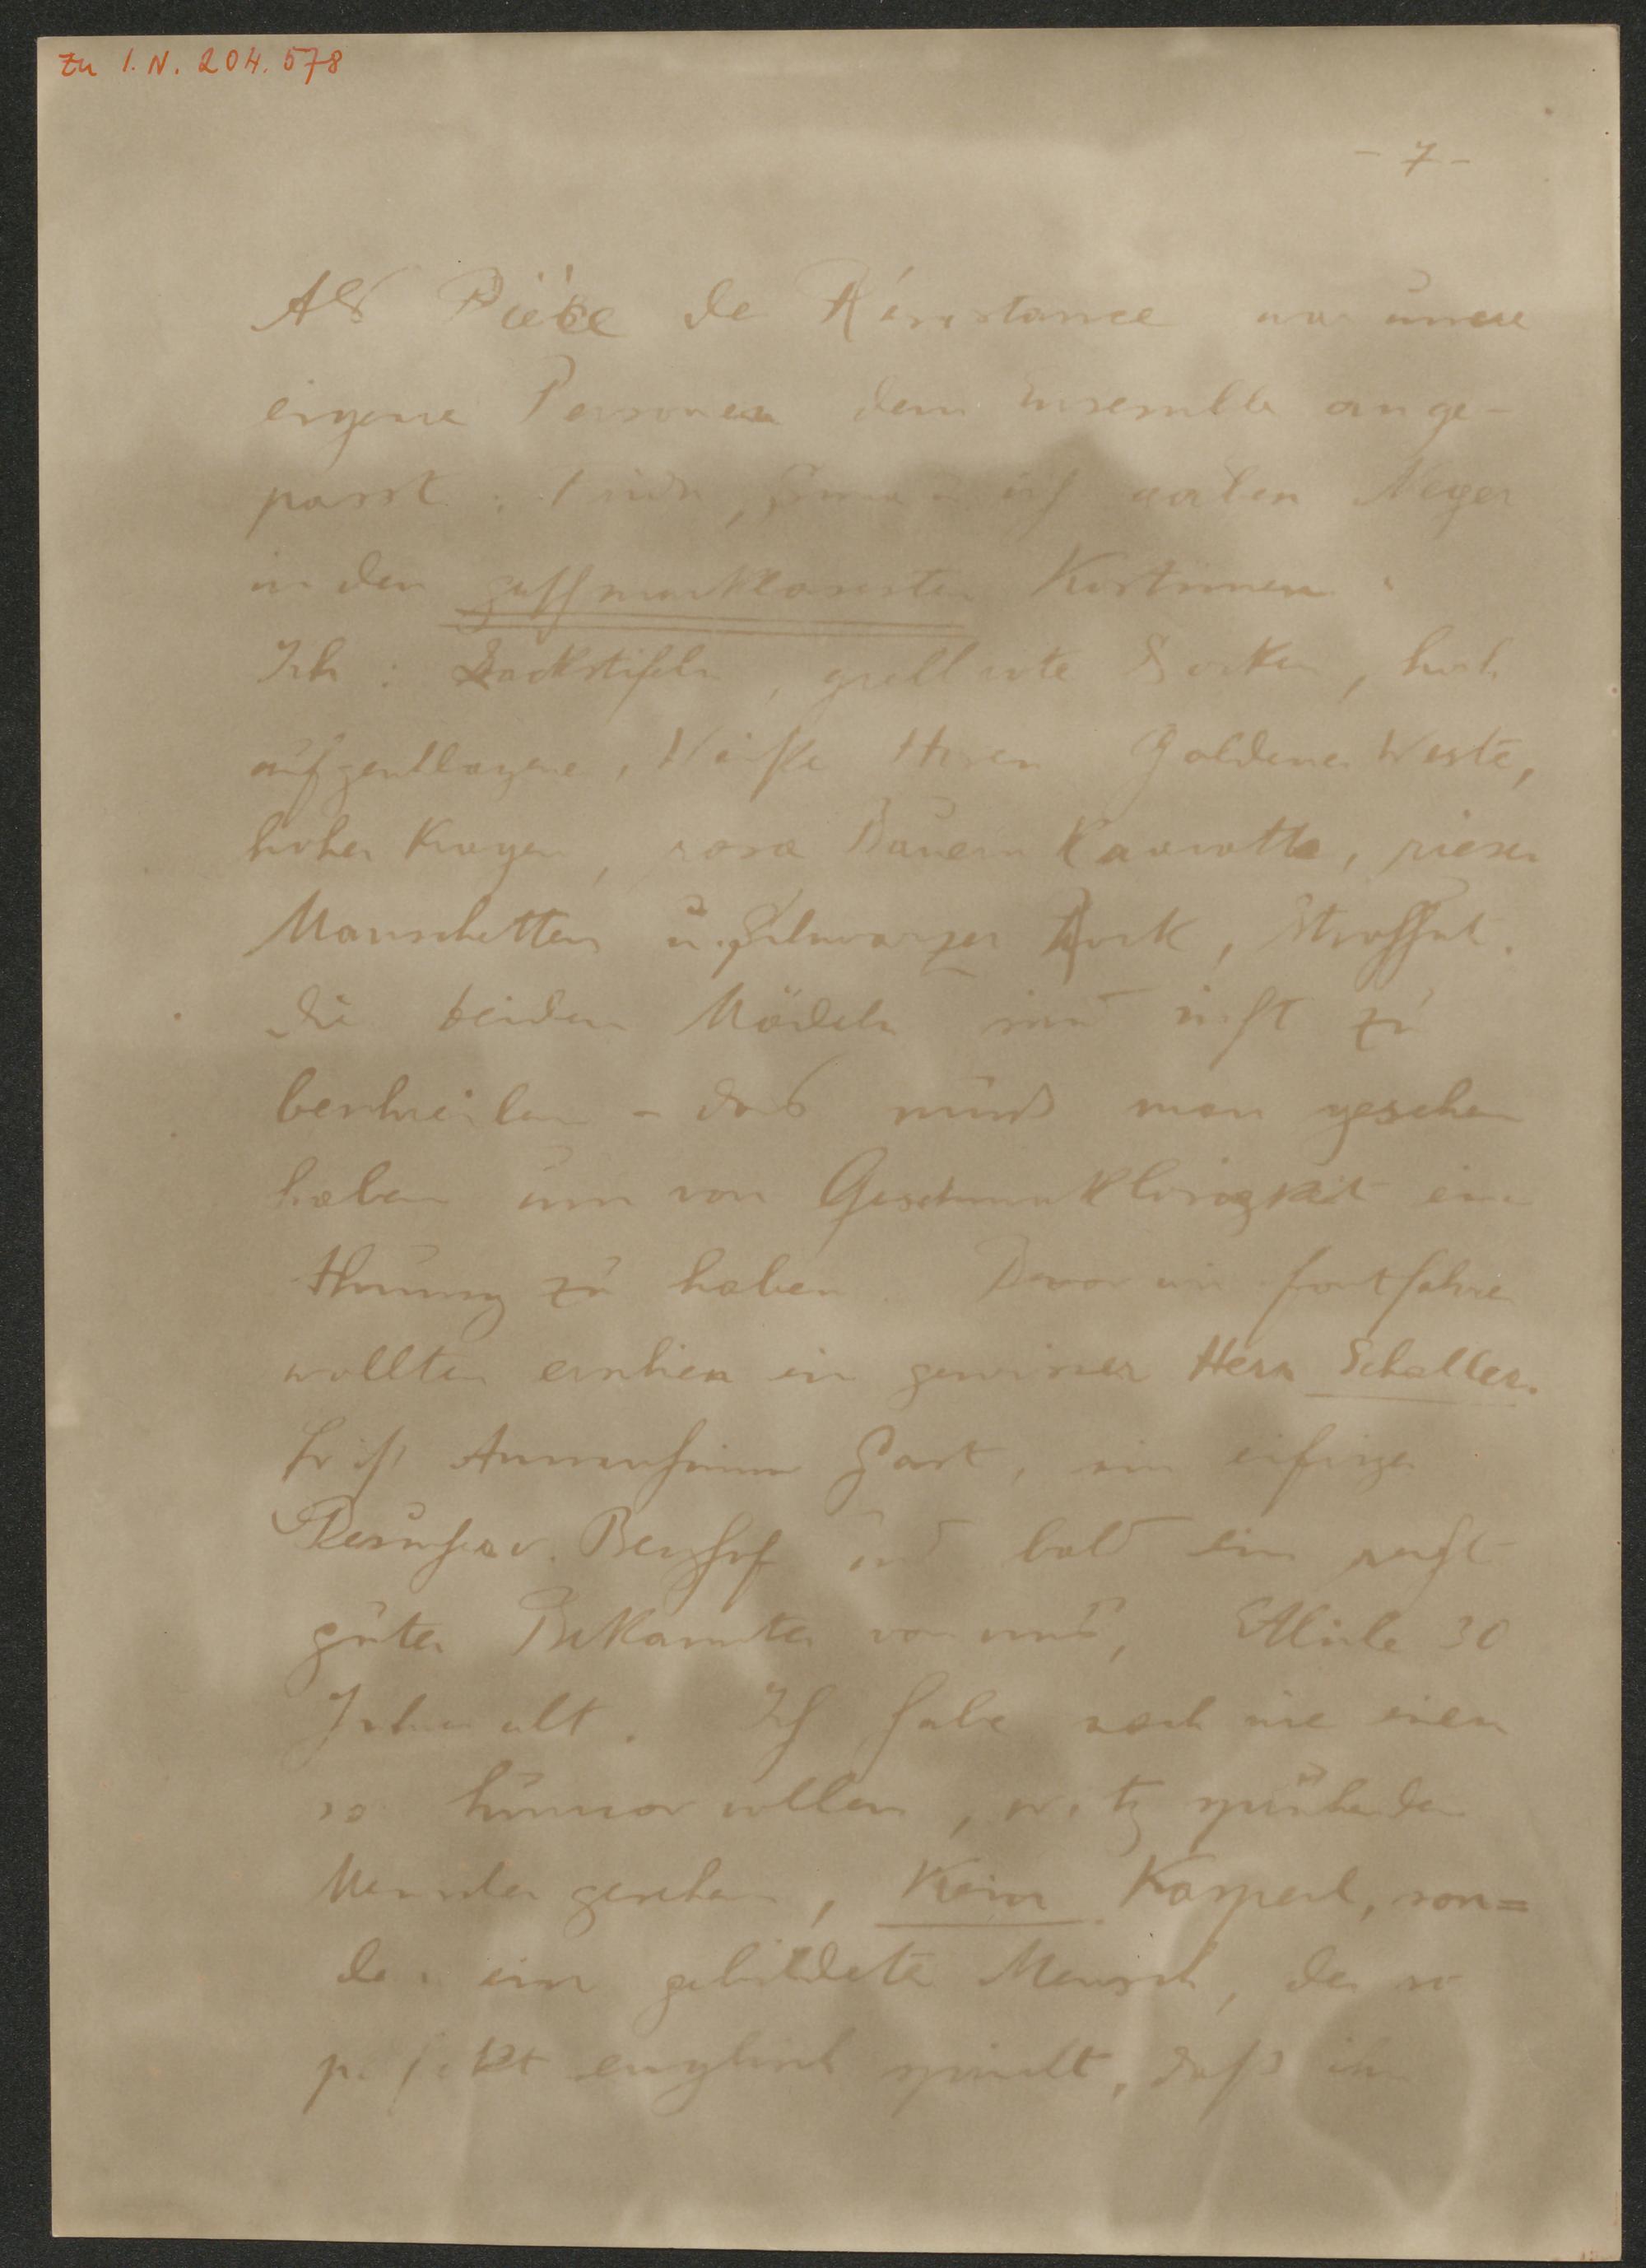 Zu I.N. 204.578
- 7 -
Als Pièce de Résistance war unsere
eigene Personen dem Ensemble ange-
passt: ich waren Neger
in den geschmacklosesten Kostümen.
Ich: Lackstifeln, grellrote Socken, hoch
aufgeschlagene, Weiße Hosen Goldene Weste,
hoher Kragen, rosa Bauern Kravatte, riesen
Manschetten u. schwarzer Rock, Strohhut.
Die beiden Mädeln sind nicht zu
beschreiben - das muss man gesehen
haben um von Geschmacklosigkeit eine
Ahnung zu haben. Bevor wir fortfahren
wollten erschien ein gewisser Herr Schaller.
Er ist Gast, ein eifriger
Besucher v. Berghof und bald ein recht
guter Bekannter von uns, Etliche 30
Jahre alt. Ich habe noch nie einen
so humorvollen, witzsprühenden
Menschen gesehen, Kein Kasperl, son=
dern ein gebildeter Mensch, der so
perfekt englisch spricht, daß ihn